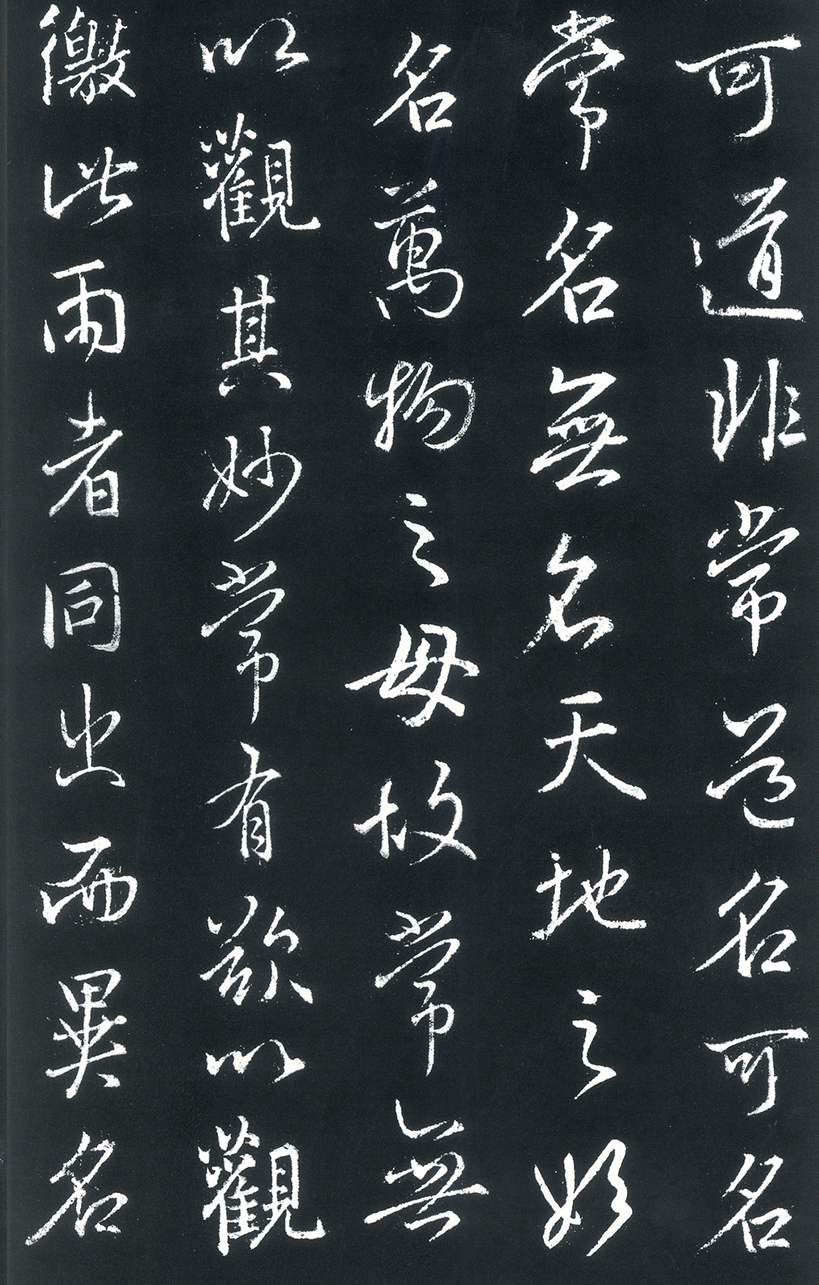 可道非常道名可名
常名無名天地之始
名萬物之母故常無
以觀其妙常有欲以觀
徼此兩者同出而異名